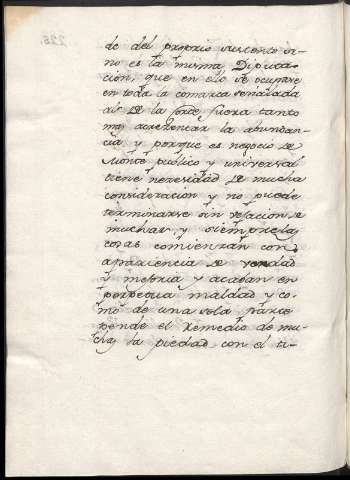 de del proprio sustento si-
no es la misma Diputa-
ción, que en ello se ocupase
en toda la comarca señalada
al de la forte fuera tanto
mas acrezencar la abundan-
cia y porque es negocio de
Monte publico y universal
tiene neresidad de mucha
consideracion y no puede
terminarse sin relacion de
muchas y siempre las
cosas comienzan con
apariencia de verdad
y mejoria y acaban en
perpetua maldad y co-
mo de una sola parte
pende el remedio de mu-
chas la piedad con el ti-